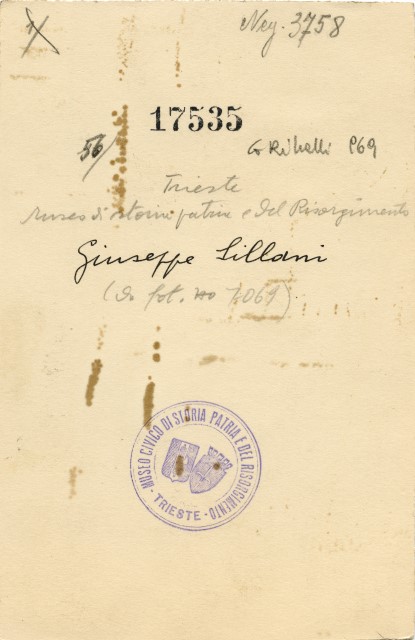 Neg. 3758
17535
56/
G Ribelli 869
Trieste
Museo di storia patria e del Risorgimento
Giuseppe Sillani
(da fot. no 7069)
MUSEO CIVICO DI STORIA PATRIA E DEL RISORGIMENTO
- TRIESTE -